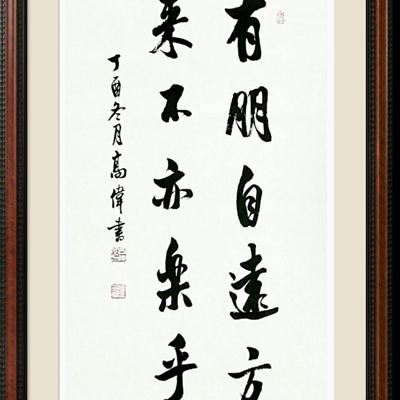 有朋自遠方
来不亦樂乎
丁酉冬月高偉書